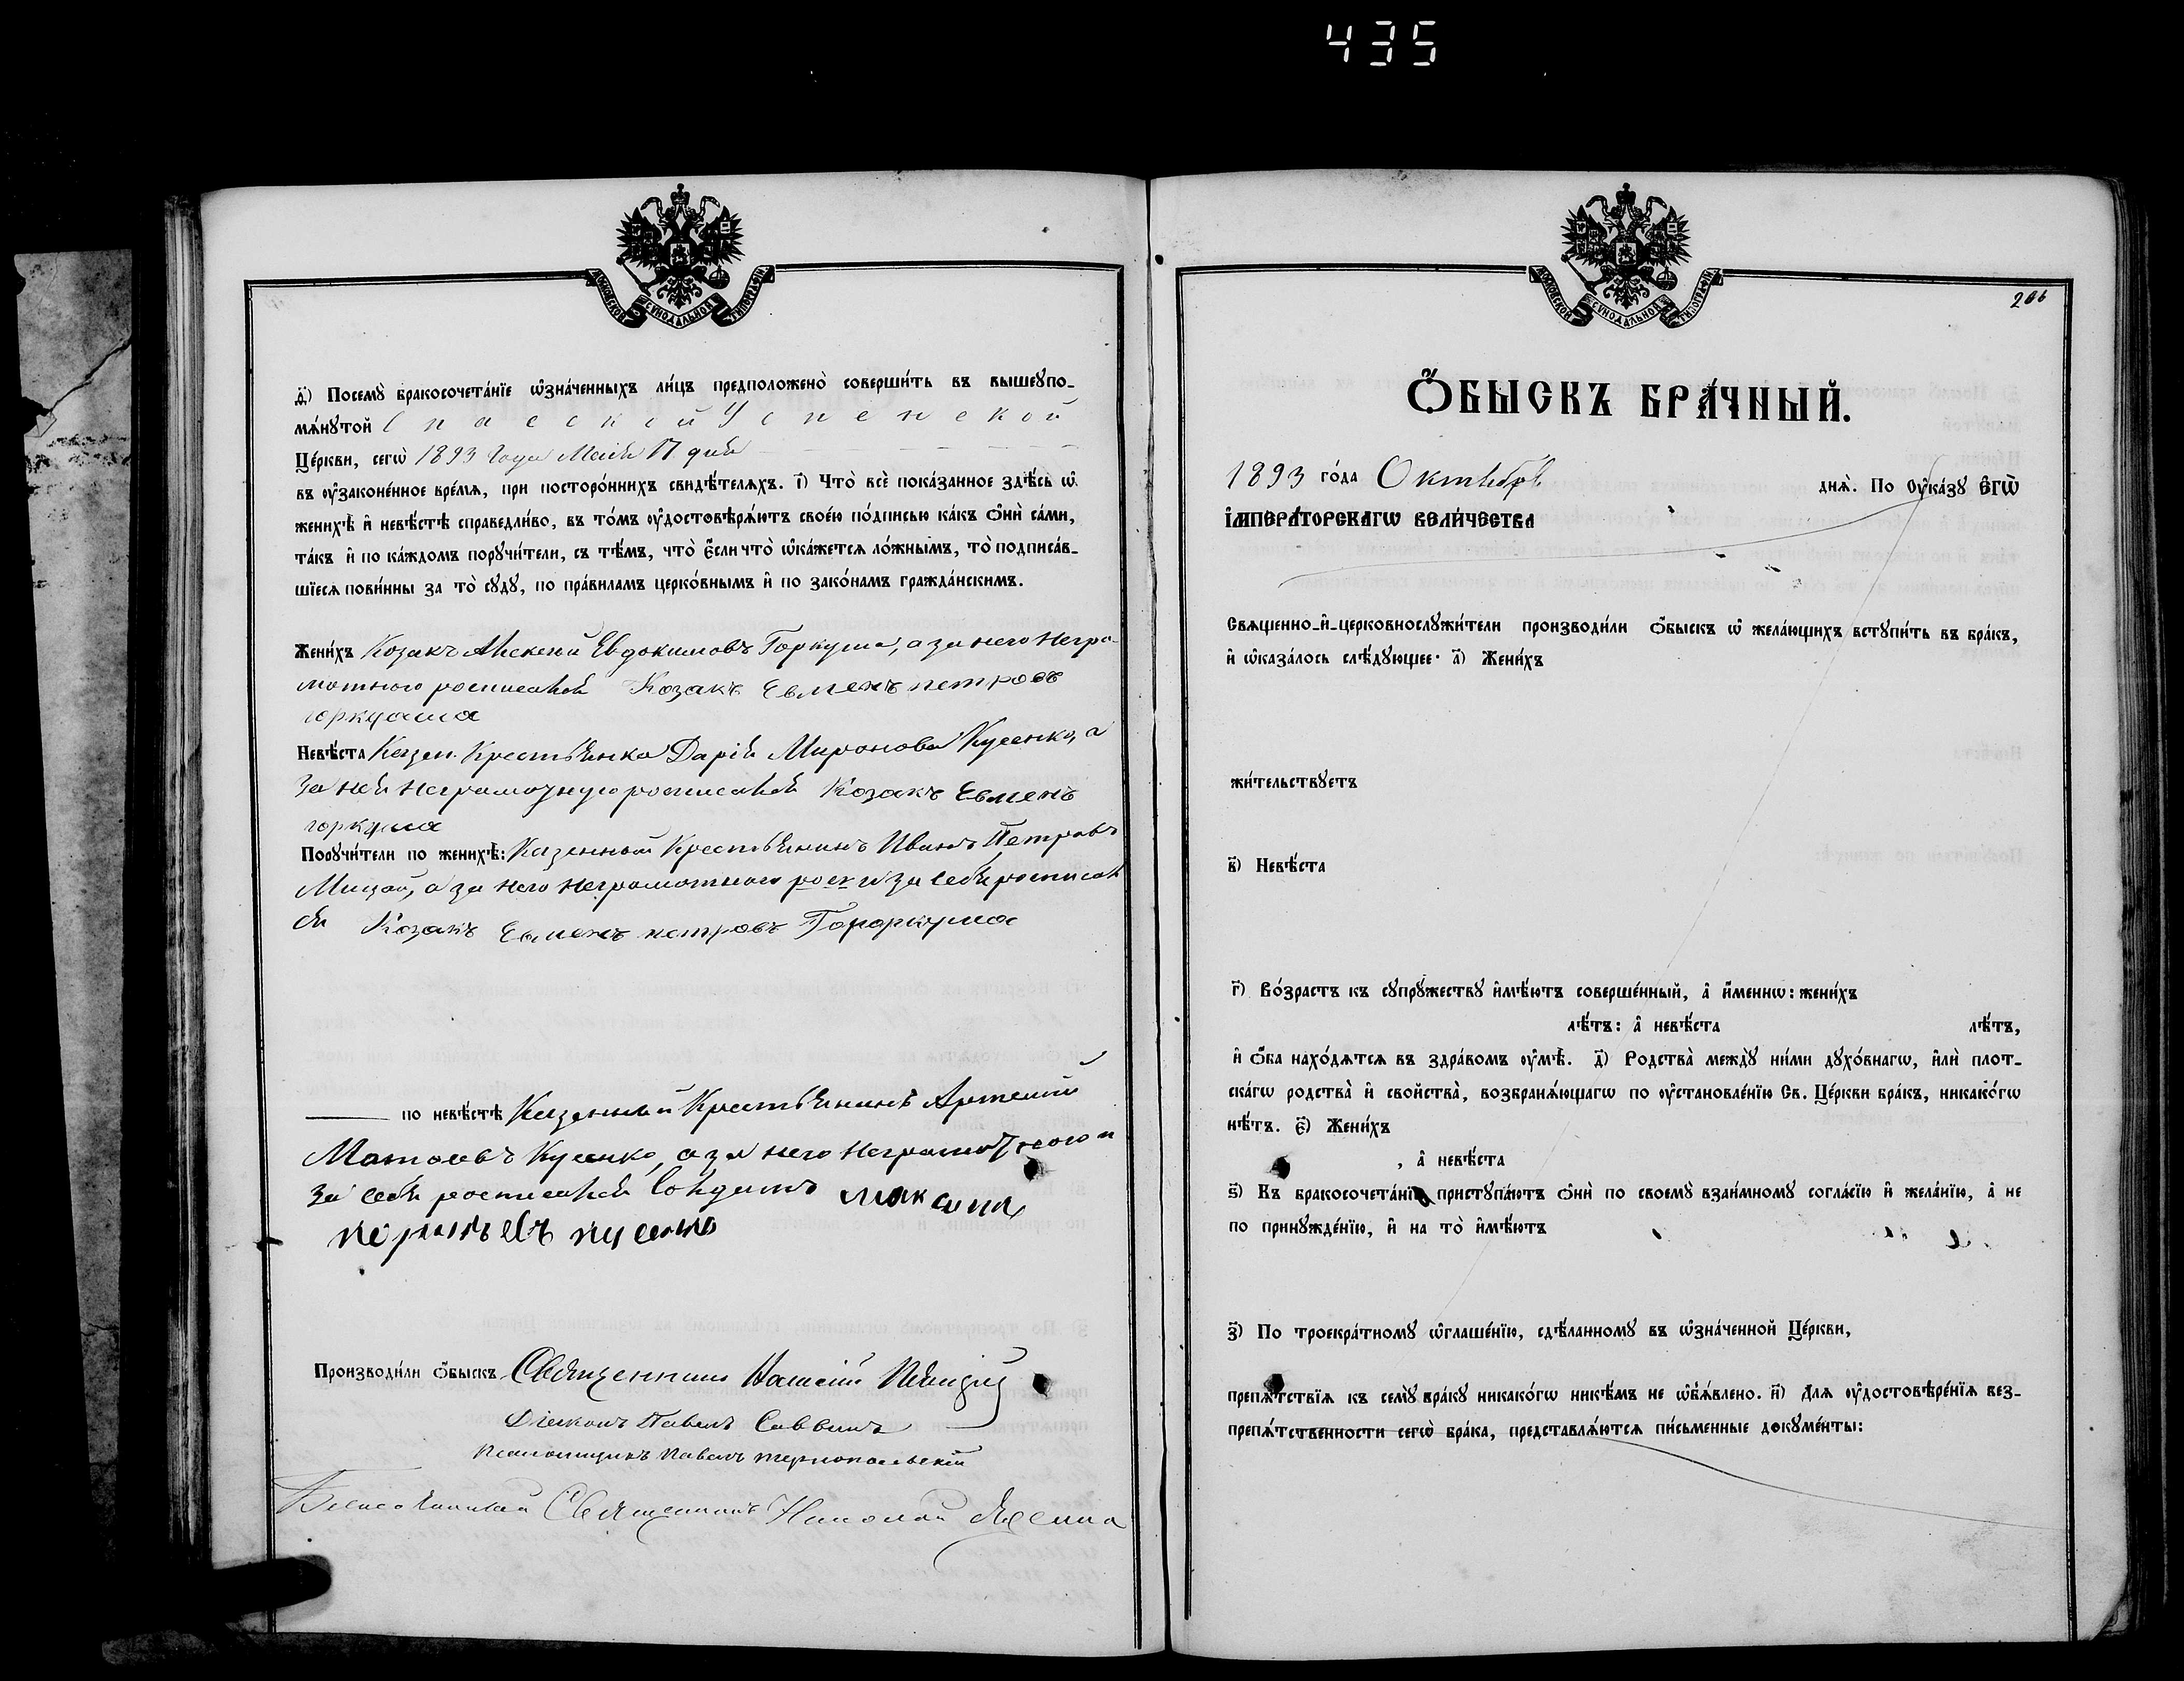 435
МОСКОВСКОЙ СѴНОДАЛЬНОЙ ТИПОГРАФІИ
д҃і) Посемꙋ̀ бракосочета́нїе ѡ҆зна́ченныхъ ли́цъ предположено̀ соверши́ть въ вышеꙋпо-
мѧ́нꙋтой Спасской Успенской
Це́ркви, сегѡ̀ 1893 года Маія 17 дня
въ ᲂу҆законе́нное вре́мѧ, при посторо́ннихъ свидѣ́телѧхъ. і҃) Что̀ всѐ пока́занное здѣ́сь ѡ҆
женихѣ̀ и҆ невѣ́стѣ справедли́во, въ то́мъ ᲂу҆достовѣрѧ́ютъ свое́ю по́дписью ка́къ ѻ҆нѝ са́ми,
та́къ и҆ по ка́ждомъ порꙋчи́тели, съ тѣ́мъ, что̀ є҆́сли что̀ ѡ҆ка́жетсѧ ло́жнымъ, то̀ подписа́в-
шїесѧ пови́нны за то̀ сꙋдꙋ̀, по пра́виламъ церко́внымъ и҆ по зако́намъ гражда́нскимъ.
Жени́хъ Козакъ Алексей Евдокимовъ Горкуша, а за него негра-
мотного росписался Козакъ Евменъ петровъ
горкуша
Невѣ́ста Казен. Крестьянка Дарія Миронова Кусенко, а
за ней неграмотную росписался Козакъ Евменъ
горкуша
Порꙋчи́тели по женихѣ̀: Казенный Крестьянинъ Иванъ Петровъ
а за него неграмотного и за себя росписал
ся Козакъ Евменъ петровъ
по невѣ́стѣ Казенный Крестьянинъ Артемій
Кусенко, а за него неграмотного и
за себя росписался Солдатъ максимъ
кусенко
Производи́ли ѻ҆́быскъ Священникъ
Діяконъ Павелъ Саввинъ
Псаломщикъ Павелъ Тернопольскій
Священникъ Николай
МОСКОВСКОЙ СѴНОДАЛЬНОЙ ТИПОГРАФІИ
206
Ѻ҆́БЫСКЪ БРА́ЧНЫЙ.
1893 го́да Октября днѧ̀. По Оу҆ка́зꙋ Є҆ГѠ̀
І҆МПЕРА́ТОРСКАГѠ ВЕЛИ́ЧЕСТВА
Свѧщенно-и҆-церковнослꙋжи́тели производи́ли ѻ҆́быскъ ѡ҆ жела́ющихъ встꙋпи́ть въ бра́къ,
и҆ ѡ҆каза́лось слѣ́дꙋющее: а҃) Жени́хъ
жи́тельствꙋетъ
в҃) Невѣ́ста
г҃) Во́зрастъ къ сꙋпрꙋ́жествꙋ и҆мѣ́ютъ соверше́нный, а҆ и҆́меннѡ: жени́хъ
лѣ́тъ: а҆ невѣ́ста лѣ́тъ,
и҆ ѻ҆́ба нахо́дѧтсѧ въ здра́вомъ ᲂу҆мѣ̀. д҃) Родства̀ междꙋ̀ ни́ми дꙋхо́внагѡ, и҆лѝ плот-
ска́гѡ родства̀ и҆ свойства̀, возбранѧ́ющагѡ по ᲂу҆становле́нїю Св. Це́ркви бра́къ, никако́гѡ
нѣ́тъ. є҃) Жени́хъ
, а҆ невѣ́ста
ѕ҃) Къ бракосочета́нїю пристꙋпа́ютъ ѻ҆нѝ по своемꙋ̀ взаи́мномꙋ согла́сїю и҆ жела́нїю, а҆ не
по принꙋжде́нїю, и҆ на то̀ и҆мѣ́ютъ
з҃) По троекра́тномꙋ ѡ҆глаше́нїю, сдѣ́ланномꙋ въ ѡ҆зна́ченной Це́ркви,
препѧ́тствїѧ къ семꙋ̀ бра́кꙋ никако́гѡ никѣ́мъ не ѡ҆б̾ѧ́влено. и҃) Длѧ ᲂу҆достовѣре́нїѧ без-
препѧ́тственности сегѡ̀ бра́ка, представлѧ́ютсѧ пи́сьменные докꙋме́нты: